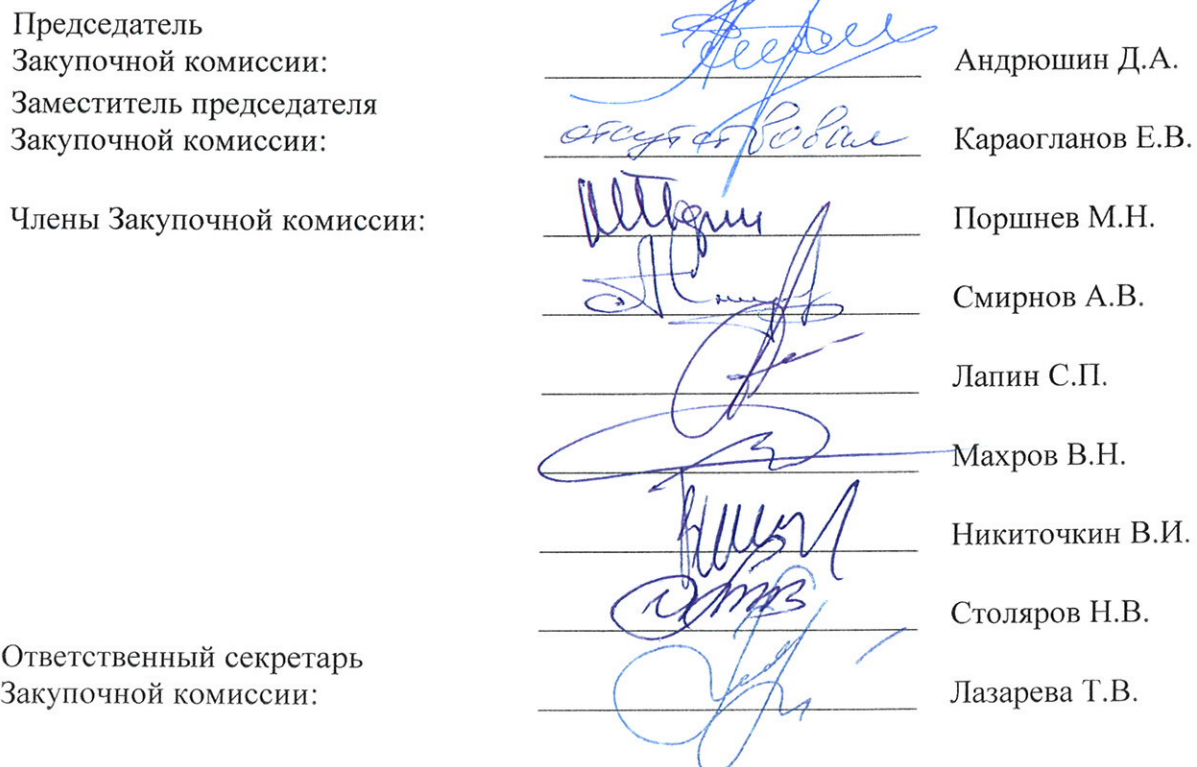 Председатель
Закупочной комиссии: Андрюшин Д.А.
Заместитель председателя
Закупочной комиссии: отсутствовал Караогланов Е.В.
Члены Закупочной комиссии: Поршнев М.Н.
Смирнов А.В.
Лапин С.П.
Махров В.Н.
Никиточкин В.И.
Столяров Н.В.
Ответственный секретарь
Закупочной комиссии: Лазарева Т.В.